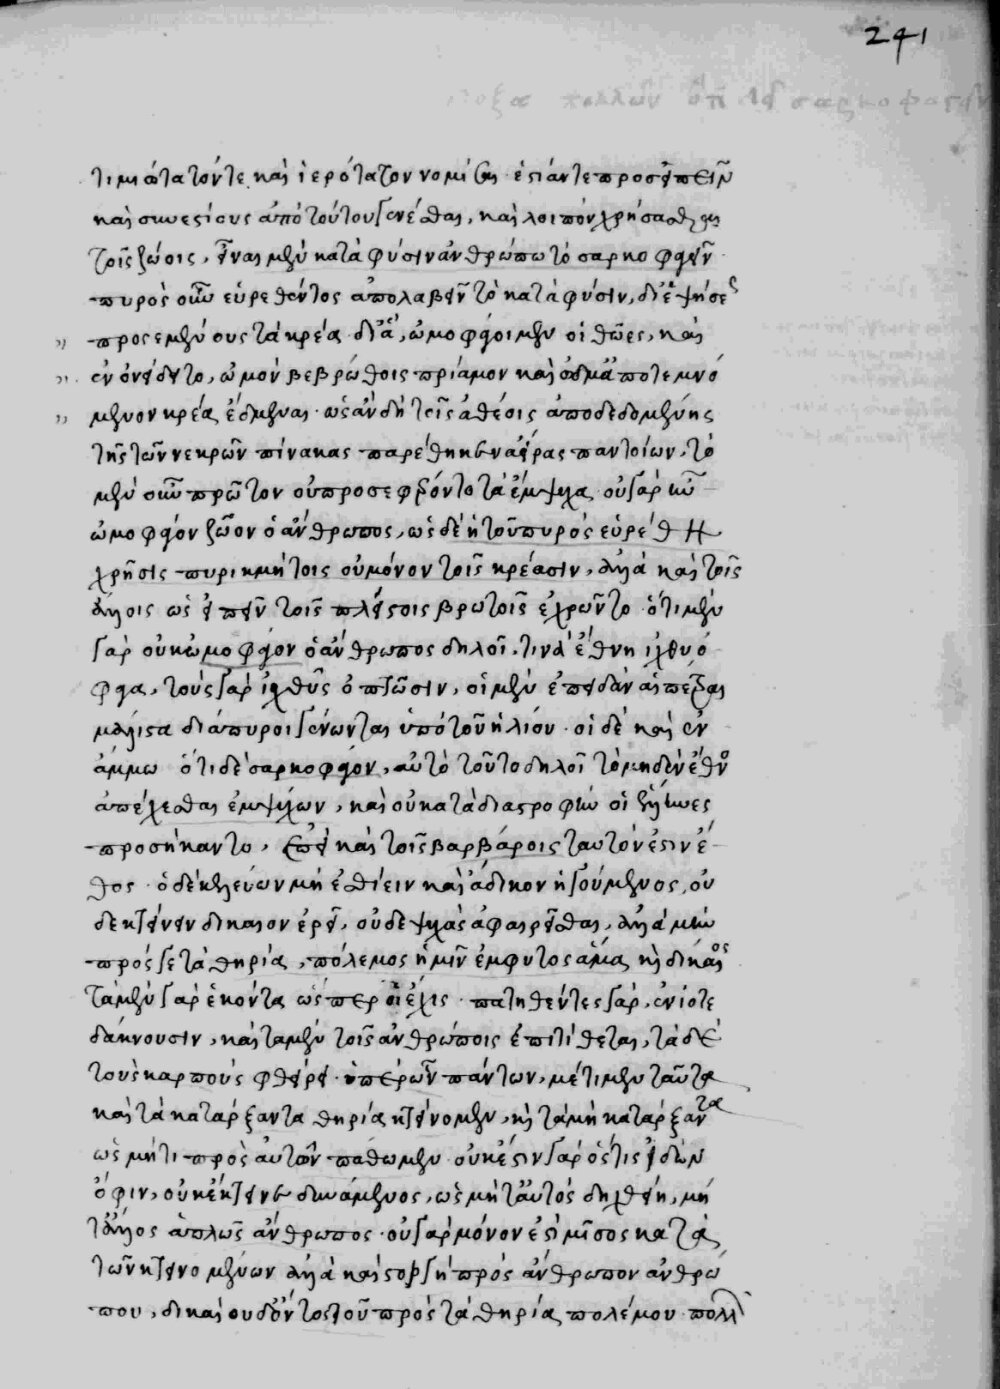 241
τιμιώτατόν τε καὶ ἱερότατον νομίσαι ἑστίαν τε προσειπεῖν
καὶ συνεστίους ἀπὸ τούτου γενέσθαι, καὶ λοιπὸν χρήσασθαι
τοῖς ζώοις, εἶναι μὲν κατὰ φύσιν ἀνθρώπω τὸ σαρκοφαγεῖν
πυρὸς οὖν εὑρεθέντος ἀπολαβεῖν τὸ κατὰ φύσιν, δι' ἑψήσεως
προσεμένους τὰ κρέα διὸ, ὠμοφάγοι μὲν οἱ θῶες, καὶ
ἐν ὀνείδει τὸ, ὠμὸν βεβρώθοις πρίαμον καὶ ὄδμα ποτεμνό
μενον κρέα ἔδμεναι ὡς ἂν δὴ τοῖς ἀθέοις ἀποδεδομένης
τῆς τῶν νεκρῶν πίνακας παρέθηκεν ἀείρας παντοίων, τὸ
μὲν οὖν πρῶτον οὐ προσεφέροντο τὰ ἔμψυχα οὐ γὰρ ἦν
ὠμοφάγον ζῶον ὁ ἄνθρωπος, ὡς δὲ ἡ τοῦ πυρὸς εὑρέθη
χρῆσις πυρικμήτοις οὐ μόνον τοῖς κρέασιν, ἀλλὰ καὶ τοῖς
ἄλλοις ὡς εἰπεῖν τοῖς πλείστοις βρωτοῖς ἐχρῶντο ὅτι μὲν
γὰρ οὐκ ὠμοφάγον ὁ ἄνθρωπος δηλοῖ, τινὰ ἔθνη ἰχθυό
φαγα, τοὺς γὰρ ἰχθῦς ὀπτῶσιν, οἱ μὲν ἐπειδὰν αἱ πέτραι
μάλιστα διάπυροι γένωνται ὑπὸ τοῦ ἡλίου οἱ δὲ καὶ ἐν
ἄμμω ὅτι δὲ σαρκοφάγον, αὐτὸ τοῦτο δηλοῖ τὸ μηδὲν ἔθνος
ἀπέχεσθαι ἐμψύχων, καὶ οὐ κατὰ διαστροφὴν οἱ ἕλληνες
προσήκαντο, ἐπεὶ καὶ τοῖς βαρβάροις ταυτόν ἐστιν ἔ
θος ὁ δὲ κελεύων μὴ ἐσθίειν καὶ ἄδικον ἡγούμενος, οὐ
δὲ κτείνειν δίκαιον ἐρεῖ, οὐδὲ ψυχὰς ἀφαιρεῖσθαι, ἀλλὰ μὴν
πρός γε τὰ θηρία, πόλεμος ἡμῖν ἔμφυτος ἅμα καὶ δίκαιος
τὰ μὲν γὰρ ἑκόντα ὥσπερ οἱ ἔχις πατηθέντες γὰρ, ἐνίοτε
δάκνουσιν, καὶ τὰ μὲν τοῖς ἀνθρώποις ἐπιτίθεται, τὰ δὲ
τοὺς καρποὺς φθείρει ὑπὲρ ὧν πάντων, μέτιμεν ταῦτα
καὶ τὰ κατάρξαντα θηρία κτείνομεν, καὶ τὰ μὴ κατάρξαντα
ὡς μήτι πρὸς αὐτῶν πάθωμεν οὐκ ἔστιν γὰρ ὅστις εἰδὼν
ὄφιν, οὐκ ἔκτεινεν δυνάμενος, ὡς μήτ' αὐτὸς δηχθείη, μή
τ' ἄλλος ἁπλῶς ἄνθρωπος οὐ γὰρ μόνον ἐστὶ μῖσος κατὰ
τῶν κτεινομένων ἀλλὰ καὶ στοργὴ πρὸς ἄνθρωπον ἀνθρώ
που, δικαίου δ' ὄντος τοῦ πρὸς τὰ θηρία πολέμου πολλ